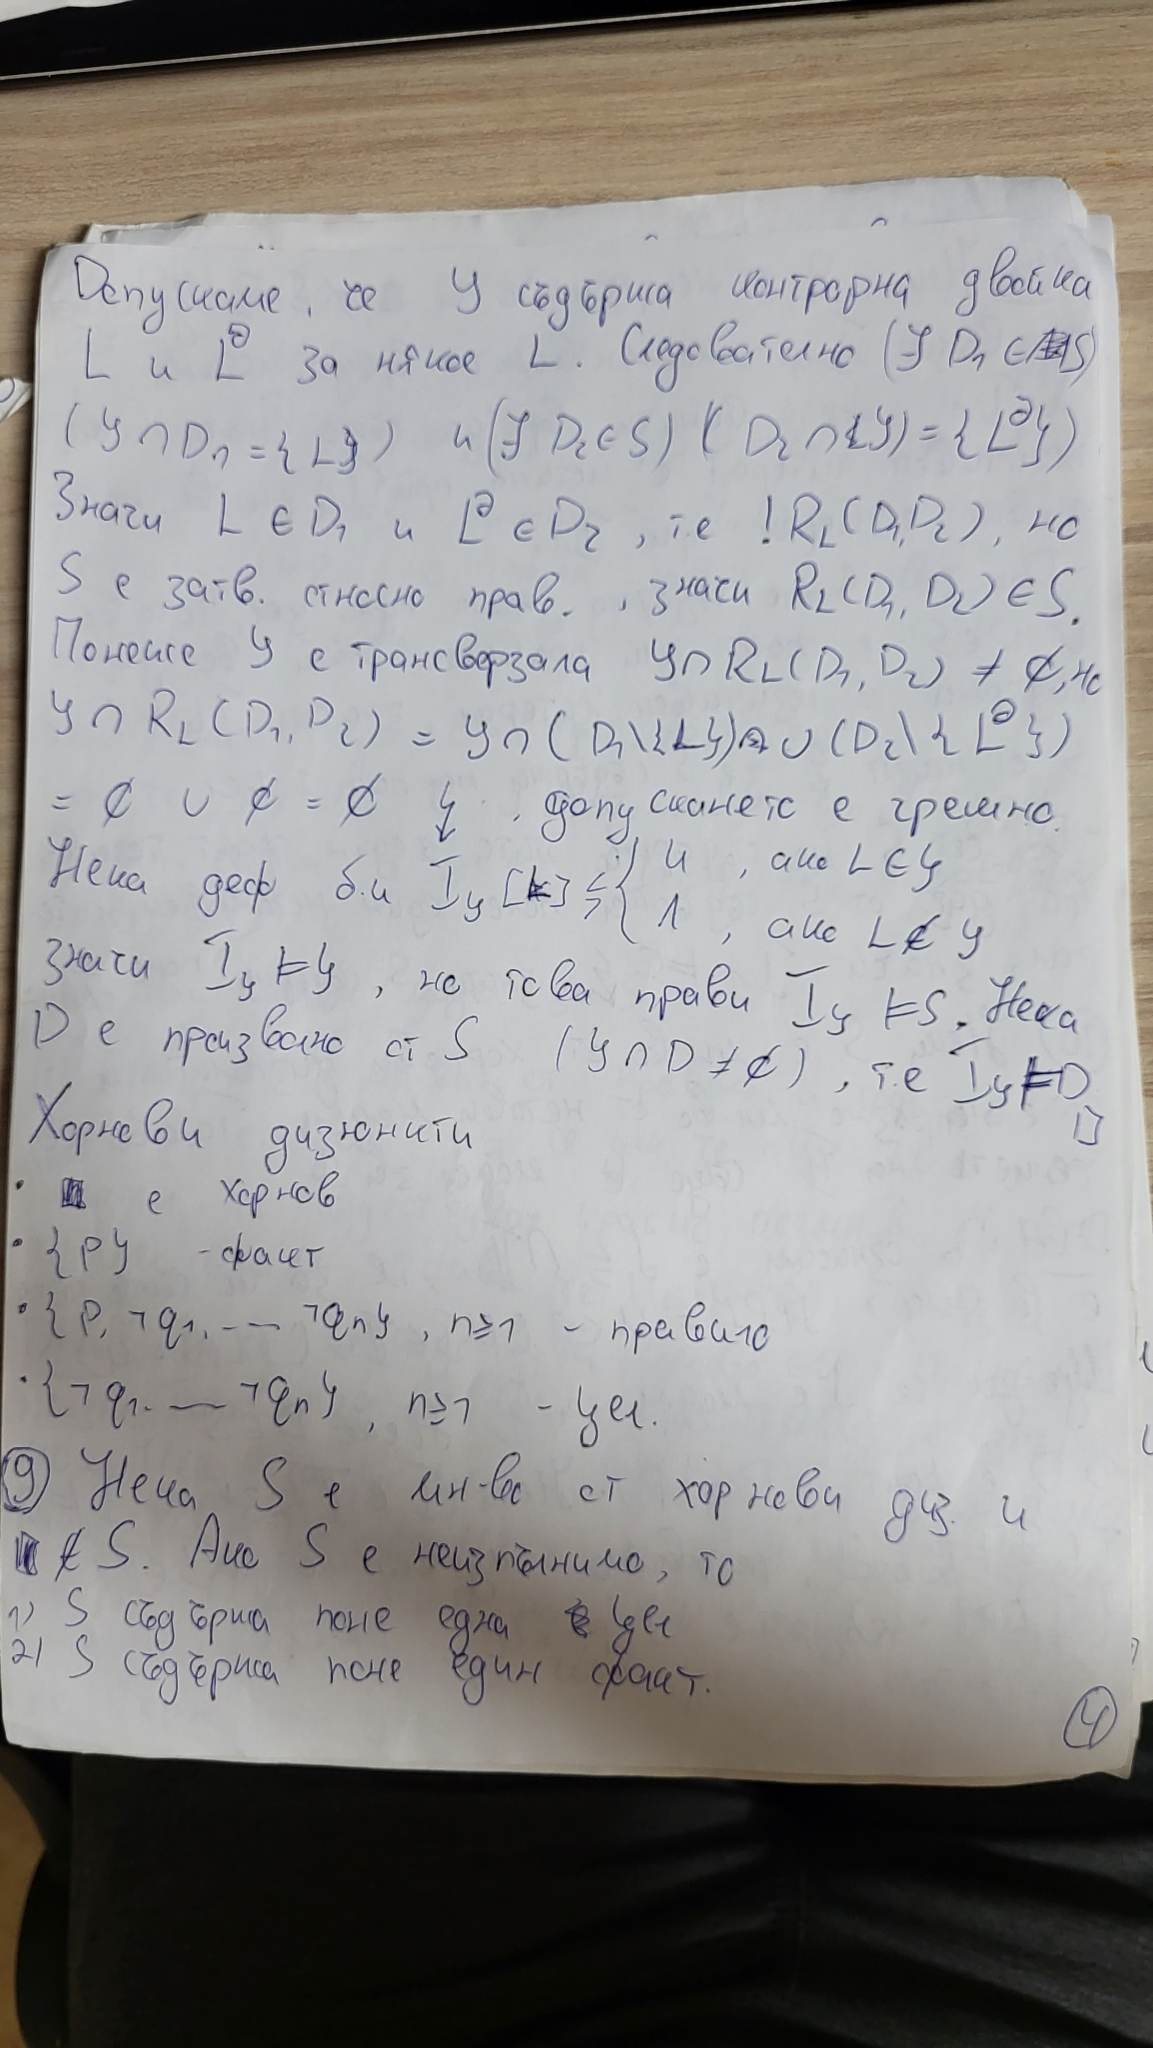 Допускаме, че Y съдържа контрарна двойка
L и L^∂ за някое L. Следователно (∃ D₁ ∈ S)
(Y ∩ D₁ = {L}) и (∃ D₂ ∈ S) (D₂ ∩ Y) = {L^∂})
Значи L ∈ D₁ и L^∂ ∈ D₂, т.е !R_L(D₁,D₂), но
S е затв. относно прав., значи R_L(D₁, D₂) ∈ S.
Понеже Y е трансверзала Y ∩ R_L(D₁, D₂) ≠ ∅, но
Y ∩ R_L(D₁, D₂) = Y ∩ (D₁\{L}) ∪ (D₂\{L^∂})
= ∅ ∪ ∅ = ∅ ↯. допускането е грешно.
Нека деф б.и I_Y[L] ⇆ { И, ако L ∈ Y
Л, ако L ∉ Y
значи I_Y ⊨ Y, но това прави I_Y ⊨ S. Нека
D е произволно от S (Y ∩ D ≠ ∅), т.е I_Y ⊨ D
□
Хорнови дизюнкти
· ■ е хорнов
· {P} - факт
· {P, ¬q₁, ... ¬qₙ}, n≥1 - правило
· {¬q₁. ... ¬qₙ}, n≥1 - цел.
⑨ Нека S е мн-во от хорнови диз. и
■ ∉ S. Ако S е неизпълнимо, то
1) S съдържа поне една цел
2) S съдържа поне един факт.
④